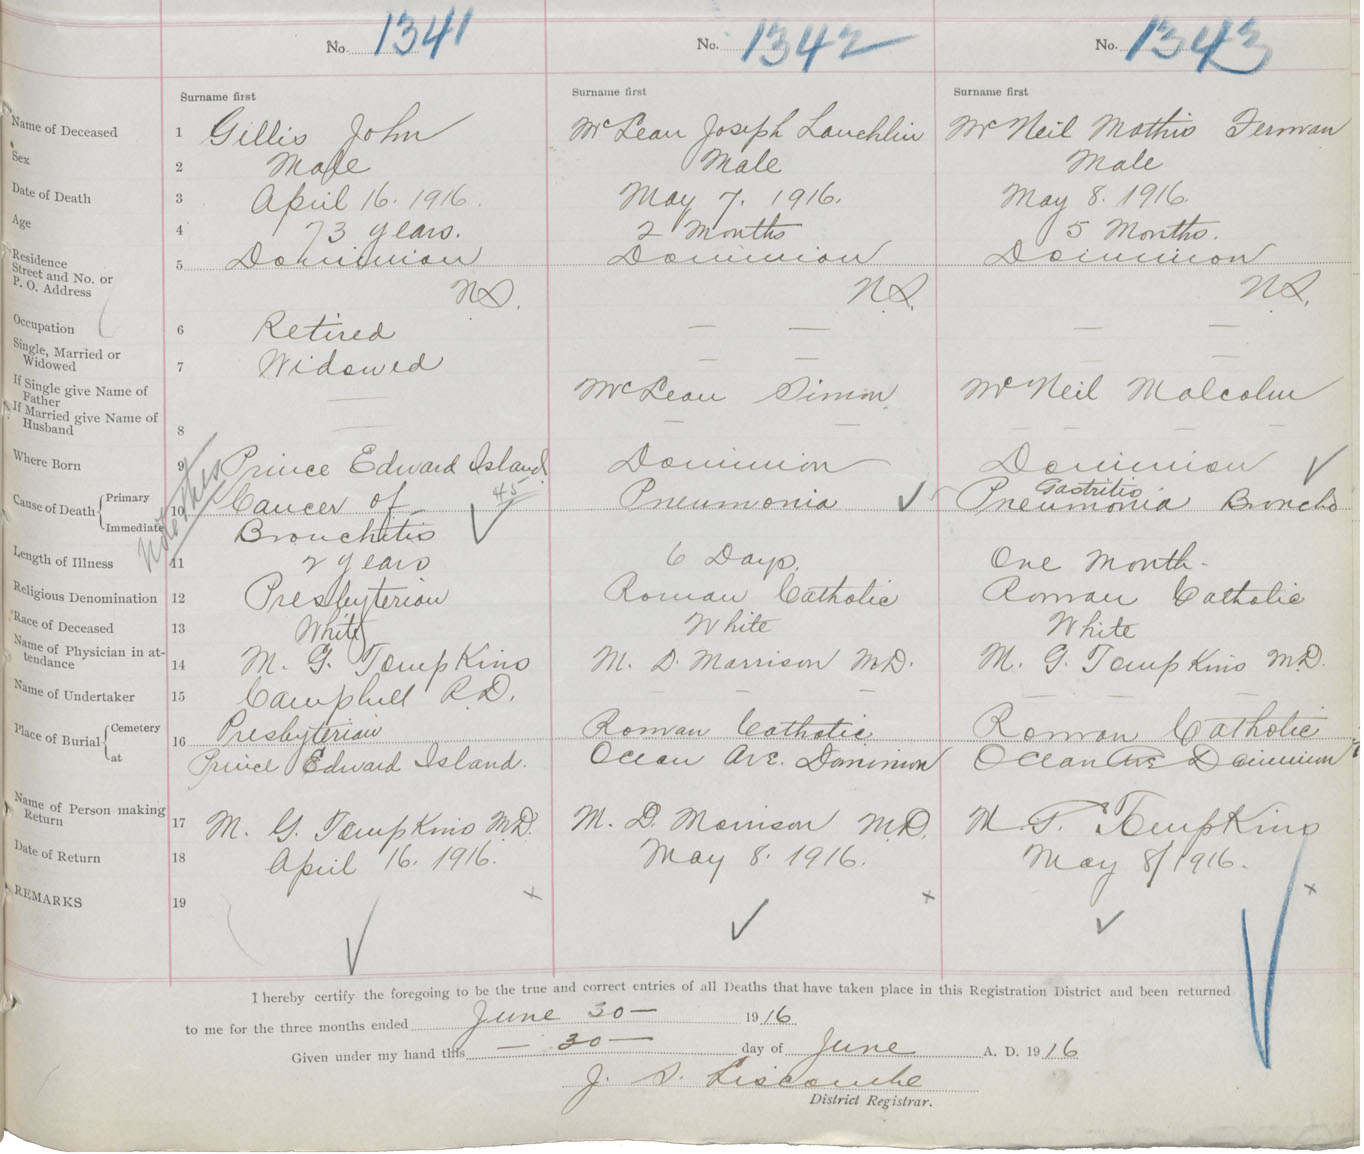 No. 1341 No. 1342 No. 1343
Surname first Surname first Surname first
Name of Deceased 1 Gillis John McLean Joseph Lauchlin McNeil Mathis
Sex 2 Male Male Male
Date of Death 3 April 16. 1916. May 7. 1916. May 8. 1916.
Age 4 73 years. 2 Months 5 Months.
Residence
Street and No. or 5 Dominion Dominion Dominion
P. O. Address N.S. N.S. N.S.
Occupation 6 Retired — — — —
Single, Married or
Widowed 7 Widowed — — — —
If Single give Name of
Father — McLean Simon McNeil Malcolm
If Married give Name of
Husband 8 — — — — — —
Where Born 9 Prince Edward Island. Dominion Dominion
Cause of Death Primary 10 Cancer of 45 Pneumonia Gastritis Pneumonia Broncho
Immediate Bronchitis
Length of Illness 11 2 years 6 Days. One Month-
Religious Denomination 12 Presbyterian Roman Catholic Roman Catholic
Race of Deceased 13 White White White
Name of Physician in at-
tendance 14 M. G. Tompkins M. D. Morrison M.D. M. G. Tompkins M.D.
Name of Undertaker 15 Campbell R.D. — — — — — —
Place of Burial Cemetery 16 Presbyterian Roman Catholic Roman Catholic
at Prince Edward Island. Ocean Ave. Dominion Ocean Ave Dominion
Name of Person making
Return 17 M. G. Tompkins M.D. M. D. Morrison M.D. M. G. Tompkins
Date of Return 18 April 16. 1916. May 8. 1916. May 8/1916.
REMARKS 19 x x x
I hereby certify the foregoing to be the true and correct entries of all Deaths that have taken place in this Registration District and been returned
to me for the three months ended June 30 — 1916
Given under my hand this — 30 — day of June A. D. 1916
J. S. Liscombe
District Registrar.